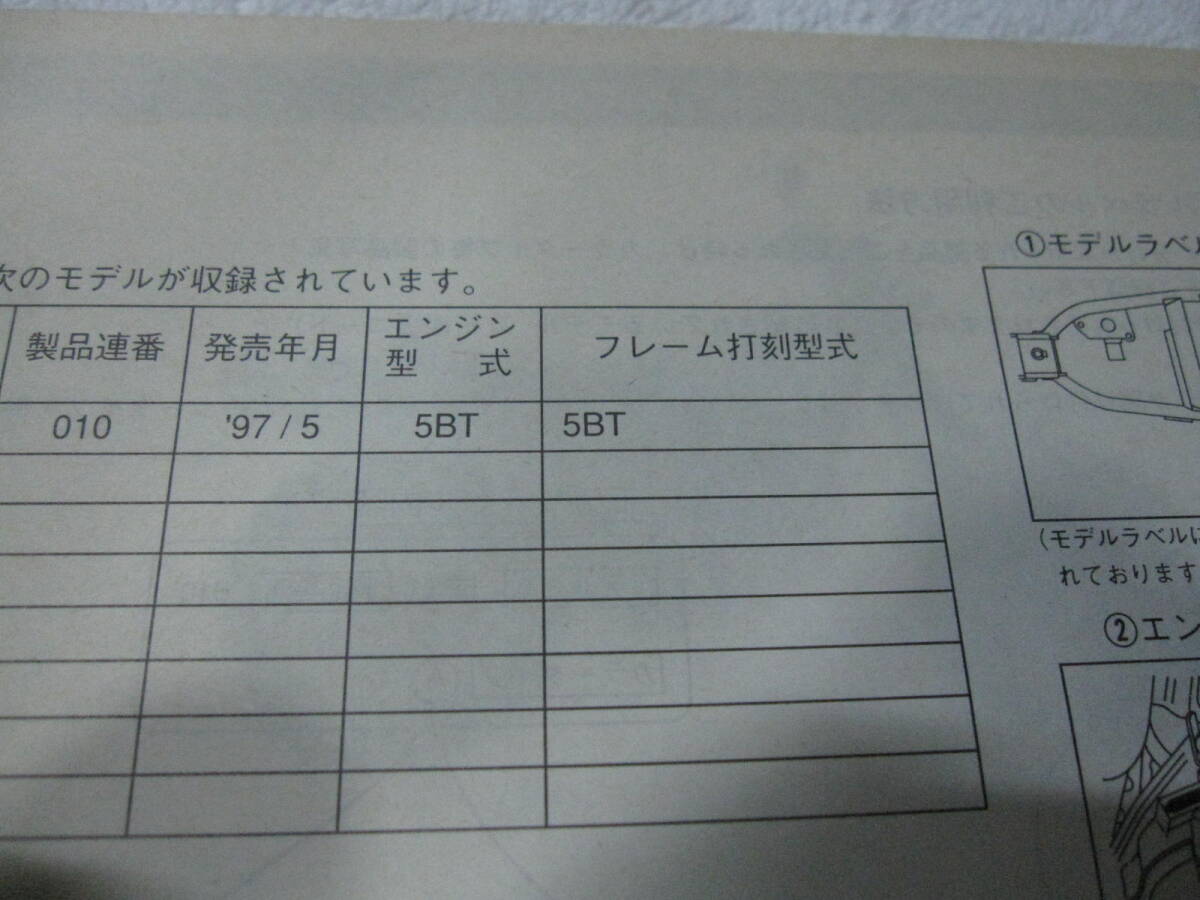 次のモデルが収録されています。
製品連番 発売年月 エンジン型式 フレーム打刻型式
010 '97 / 5 5BT 5BT
①モデルラベル
(モデルラベルに
れております
②エン